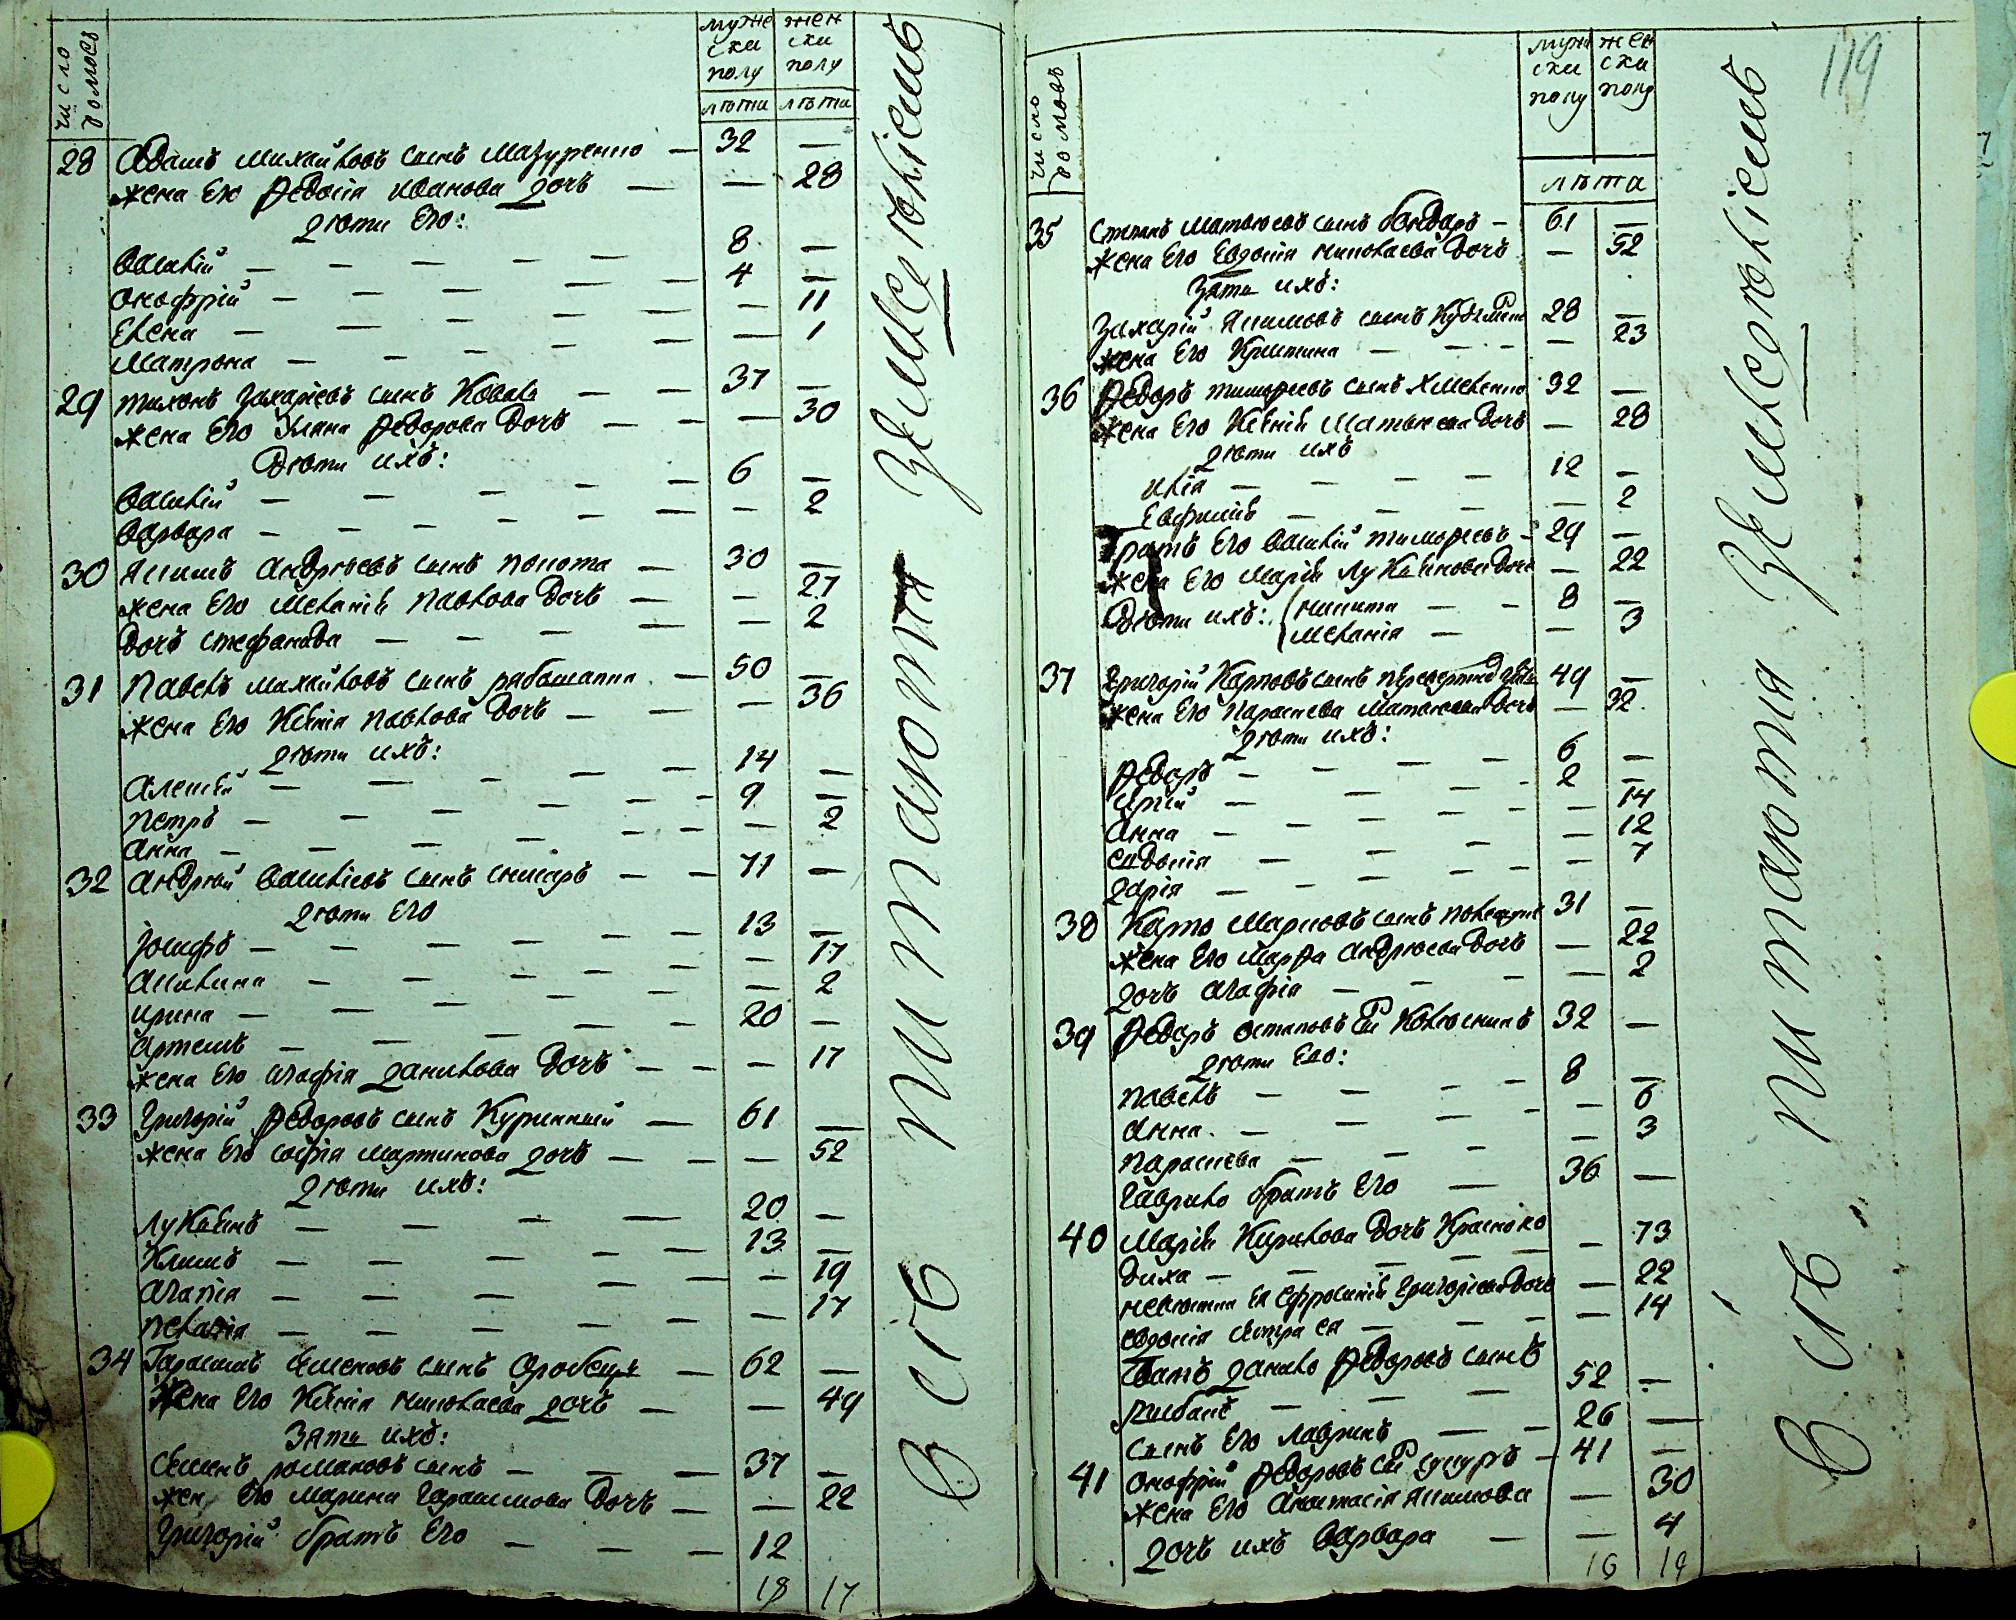 число домовъ
муже ски полу
жен ски полу
лѣта лѣта
28 Адамъ Михайловъ сынъ Мазуренко — 32 —
жена Его Ѳедосія Иванова дочь — — 28
дѣти Его:
Василій — 8 —
Онофрій — 4 —
Елена — — 11
Матрона — — 1
29 Тихонъ Захаріевъ сынъ Коваль — 37 —
жена Его Уляна Ѳедорова дочь — — 30
Дѣти ихъ:
Василій — 6 —
Варвара — — 2
30 Якимъ Андрѣевъ сынъ — 30 —
жена Его Меланія Павлова дочь — — 27
дочь Стефанида — — 2
31 Павелъ Михайловъ сынъ — 50 —
жена Его Ксенія Павлова дочь — — 36
дѣти ихъ:
Алексѣй — 14 —
Петръ — 9 —
Анна — — 2
32 Андрѣй Василіевъ сынъ — 71 —
дѣти Его
Іосифъ — 13 —
Акилина — — 17
Ирина — — 2
Артемъ — 20 —
жена Его Агафія Данилова дочь — — 17
33 Григорій Ѳедоровъ сынъ Куринный — 61 —
жена Его Софія Мартинова дочь — — 52
дѣти ихъ:
Лукіянъ — 20 —
Климъ — 13 —
Агапія — — 19
Пелагія — — 17
34 Гарасимъ Семеновъ сынъ — 62 —
Жена Его Ксенія Николаева дочь — — 49
Зяти ихъ:
Семенъ Романовъ сынъ — 37 —
жена Его Марина Гарасимова дочь — — 22
Григорій братъ Его — 12
18 17
Всѣ питаются земледѣліемъ
119
число домовъ
муже ски полу
жен ски полу
лѣта
35 Степанъ Матвѣевъ сынъ бондарь — 61 —
жена Его Евдокія Николаева дочь — 52
Зяти ихъ:
Захарій Якимовъ сынъ 28 —
жена Его Кристина — — 23
36 Ѳедоръ Тимофеевъ сынъ Хмеленко 32 —
жена Его Ксенія Матвѣева дочь — 28
дѣти ихъ
Илія — 12 —
Евфимія — — 2
братъ Его Василій Тимофеевъ — 29 —
жена Его Марія Лукіянова дочь — 22
Дѣти ихъ: Никита — 8 —
Меланія — — 3
37 Григорій Карповъ сынъ 49 —
жена Его Параскева Матвѣева дочь — 32
дѣти ихъ:
Ѳедоръ — 6 —
Юрій — 2 —
Анна — — 14
Евдокія — — 12
Дарія — — 7
38 Карпо Марковъ сынъ 31 —
жена Его Марѳа Андрѣева дочь — 22
дочь Агафія — — 2
39 Ѳедоръ Остаповъ 32 —
дѣти Его:
Павелъ — 8 —
Анна — — 6
Параскева — — 3
Гаврило братъ Его — 36 —
40 Марія Кирилова дочь Красноко — 73
диха —
невѣстка Ея Ефросинія Григоріева дочь — 22
Евдокія сестра Ея — — 14
Данило Ѳедоровъ сынъ
52 —
сынъ Его Лавринъ — 26 —
41 Онофрій Ѳедоровъ — 41 —
жена Его Анастасія Якимова — 30
дочь ихъ Варвара — — 4
16 19
Всѣ питаются Земледѣліемъ